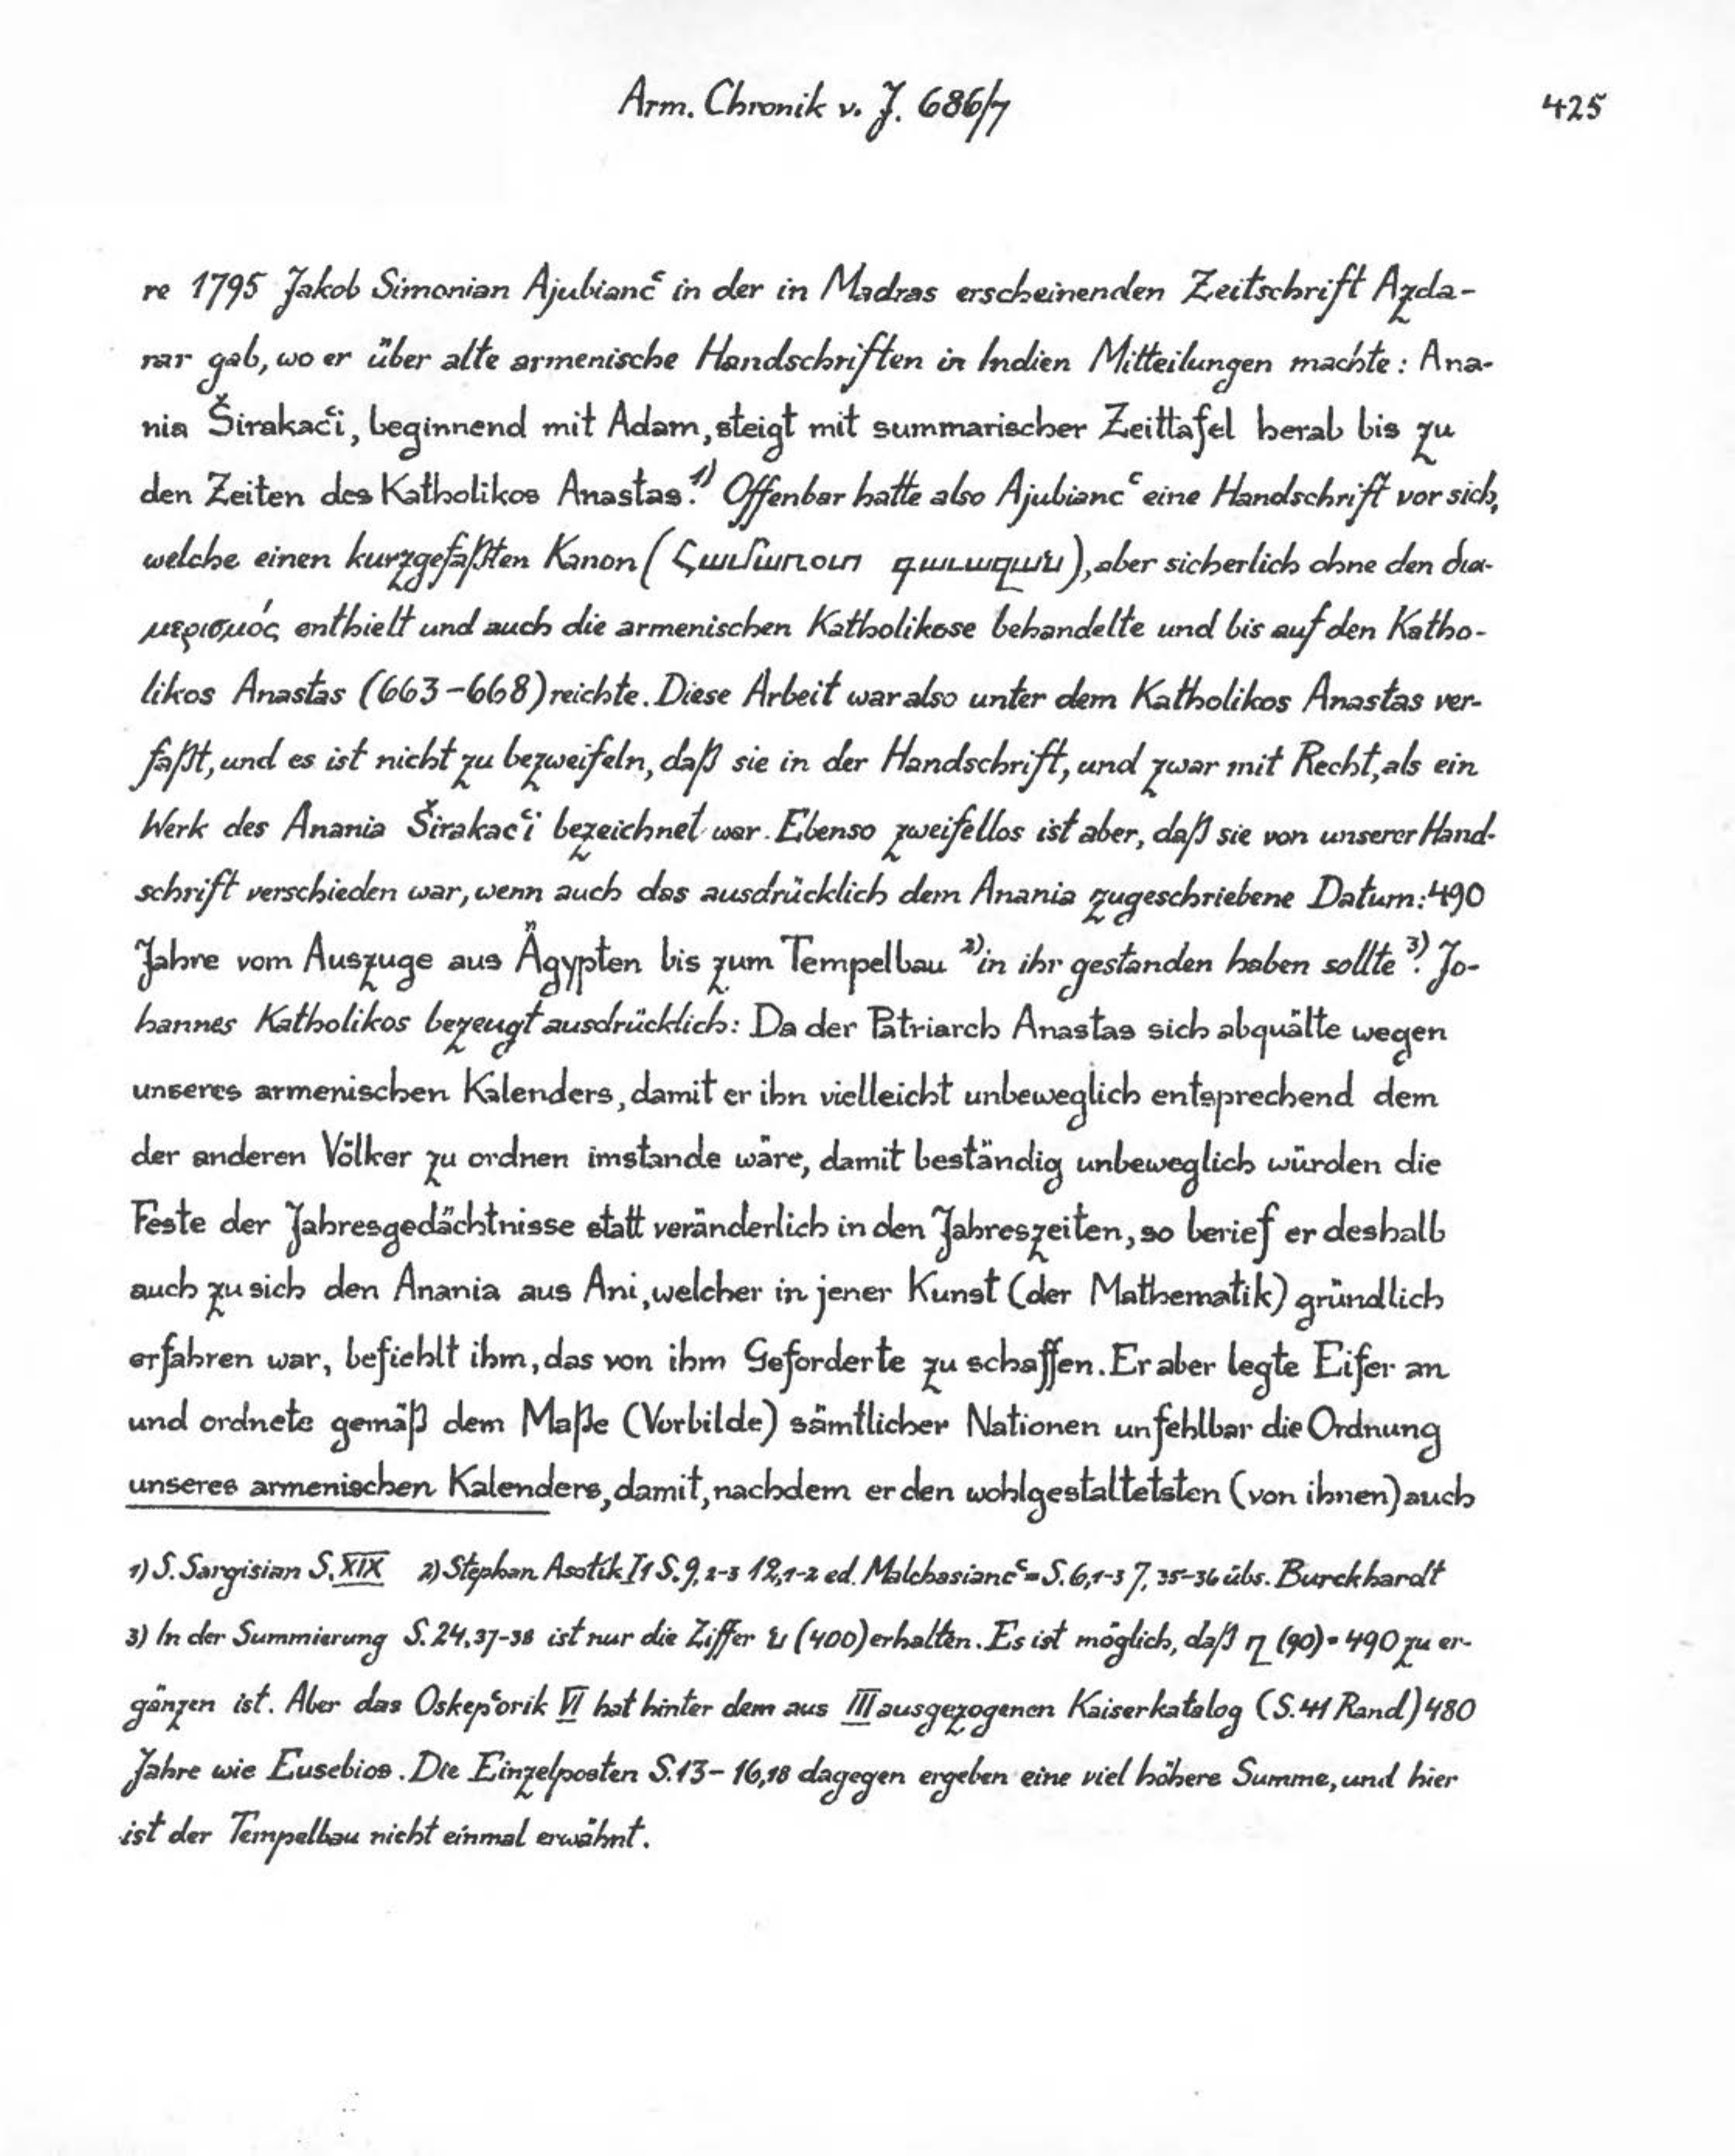 Arm. Chronik v. J. 686/7
425
re 1795 Jakob Simonian Ajubiancʿ in der in Madras erscheinenden Zeitschrift Azda-
rar gab, wo er über alte armenische Handschriften in Indien Mitteilungen machte: Ana-
nia Širakacʿi, beginnend mit Adam, steigt mit summarischer Zeittafel herab bis zu
den Zeiten des Katholikos Anastas.¹⁾ Offenbar hatte also Ajubiancʿ eine Handschrift vor sich,
welche einen kurzgefaßten Kanon (Համառօտ գաւազան), aber sicherlich ohne den δια-
μερισμός enthielt und auch die armenischen Katholikose behandelte und bis auf den Katho-
likos Anastas (663-668) reichte. Diese Arbeit war also unter dem Katholikos Anastas ver-
faßt, und es ist nicht zu bezweifeln, daß sie in der Handschrift, und zwar mit Recht, als ein
Werk des Anania Širakacʿi bezeichnet war. Ebenso zweifellos ist aber, daß sie von unserer Hand-
schrift verschieden war, wenn auch das ausdrücklich dem Anania zugeschriebene Datum: 490
Jahre vom Auszuge aus Ägypten bis zum Tempelbau ²⁾ in ihr gestanden haben sollte.³⁾ Jo-
hannes Katholikos bezeugt ausdrücklich: Da der Patriarch Anastas sich abquälte wegen
unseres armenischen Kalenders, damit er ihn vielleicht unbeweglich entsprechend dem
der anderen Völker zu ordnen imstande wäre, damit beständig unbeweglich würden die
Feste der Jahresgedächtnisse statt veränderlich in den Jahreszeiten, so berief er deshalb
auch zu sich den Anania aus Ani, welcher in jener Kunst (der Mathematik) gründlich
erfahren war, befiehlt ihm, das von ihm Geforderte zu schaffen. Er aber legte Eifer an
und ordnete gemäß dem Maße (Vorbilde) sämtlicher Nationen unfehlbar die Ordnung
unseres armenischen Kalenders, damit, nachdem er den wohlgestaltetsten (von ihnen) auch
1) S. Sargisian S. XIX 2) Stephan Asotik I1 S. 9, 2-3 12, 1-2 ed. Malchasiancʿ = S. 6, 1-3 7, 35-36 übs. Burckhardt
3) In der Summierung S. 24, 37-38 ist nur die Zifferն (400) erhalten. Es ist möglich, daßղ (90) = 490 zu er-
gänzen ist. Aber das Oskepʿorik VI hat hinter dem aus III ausgezogenen Kaiserkatalog (S. 41 Rand) 480
Jahre wie Eusebios. Die Einzelposten S. 13-16, 18 dagegen ergeben eine viel höhere Summe, und hier
ist der Tempelbau nicht einmal erwähnt.